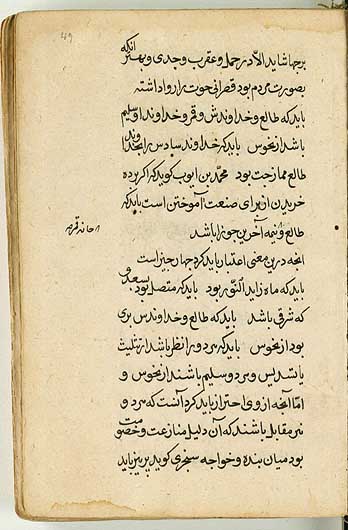 برجها شاید الا در حمل و عقرب و جدی و بهتر آنکه
بصورت مردم بود قصرانی حوت را روا داشته
باید که طالع و خداوندش و قمر و خداوند او سلیم
باشد از نحوس باید که خداوند سادس را بخداوند
طالع ممازجت بود محمد بن ایوب کوید که اکر برده
خریدن از برای صنعت آموختن است باید که
طالع و نیمه آخرین جوزا باشد
آنچه درین معنی اعتبار باید کرد چهار چیز است
باید که ماه زاید النّور بود باید که متصل بود بسعد و
که شرقی باشد باید که طالع و خداوندش بری
بود از نحوس باید که هر دو را نظر باشد از تثلیث
یا تسدیس و هر دو سلیم باشند از نحوس و
امّا آنچه از وی احتراز باید کرد آنست که هر دو
نیر مقابل باشند که آن دلیل منازعت و خصومت
بود میان بنده و خواجه سجزی کوید پرهیز باید